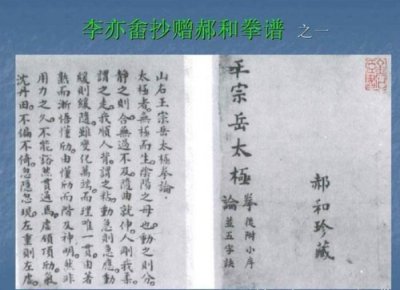 李亦畲抄赠郝和拳谱 之一
郝和珍藏
王宗岳太極拳論 後附小序 並五字訣
山右王宗岳太極拳論。
太極者。無極而生。陰陽之母也。動之則分。
靜之則合。無過不及。隨曲就伸。人剛我柔
謂之走。我順人背謂之粘。動急則急應。動
緩則緩隨。雖變化萬端。而理唯一貫。由著
熟而漸悟懂勁。由懂勁而階及神明。然非
用力之久。不能豁然貫通焉。虛領頂勁。氣
沈丹田。不偏不倚。忽隱忽現。左重則左虛。